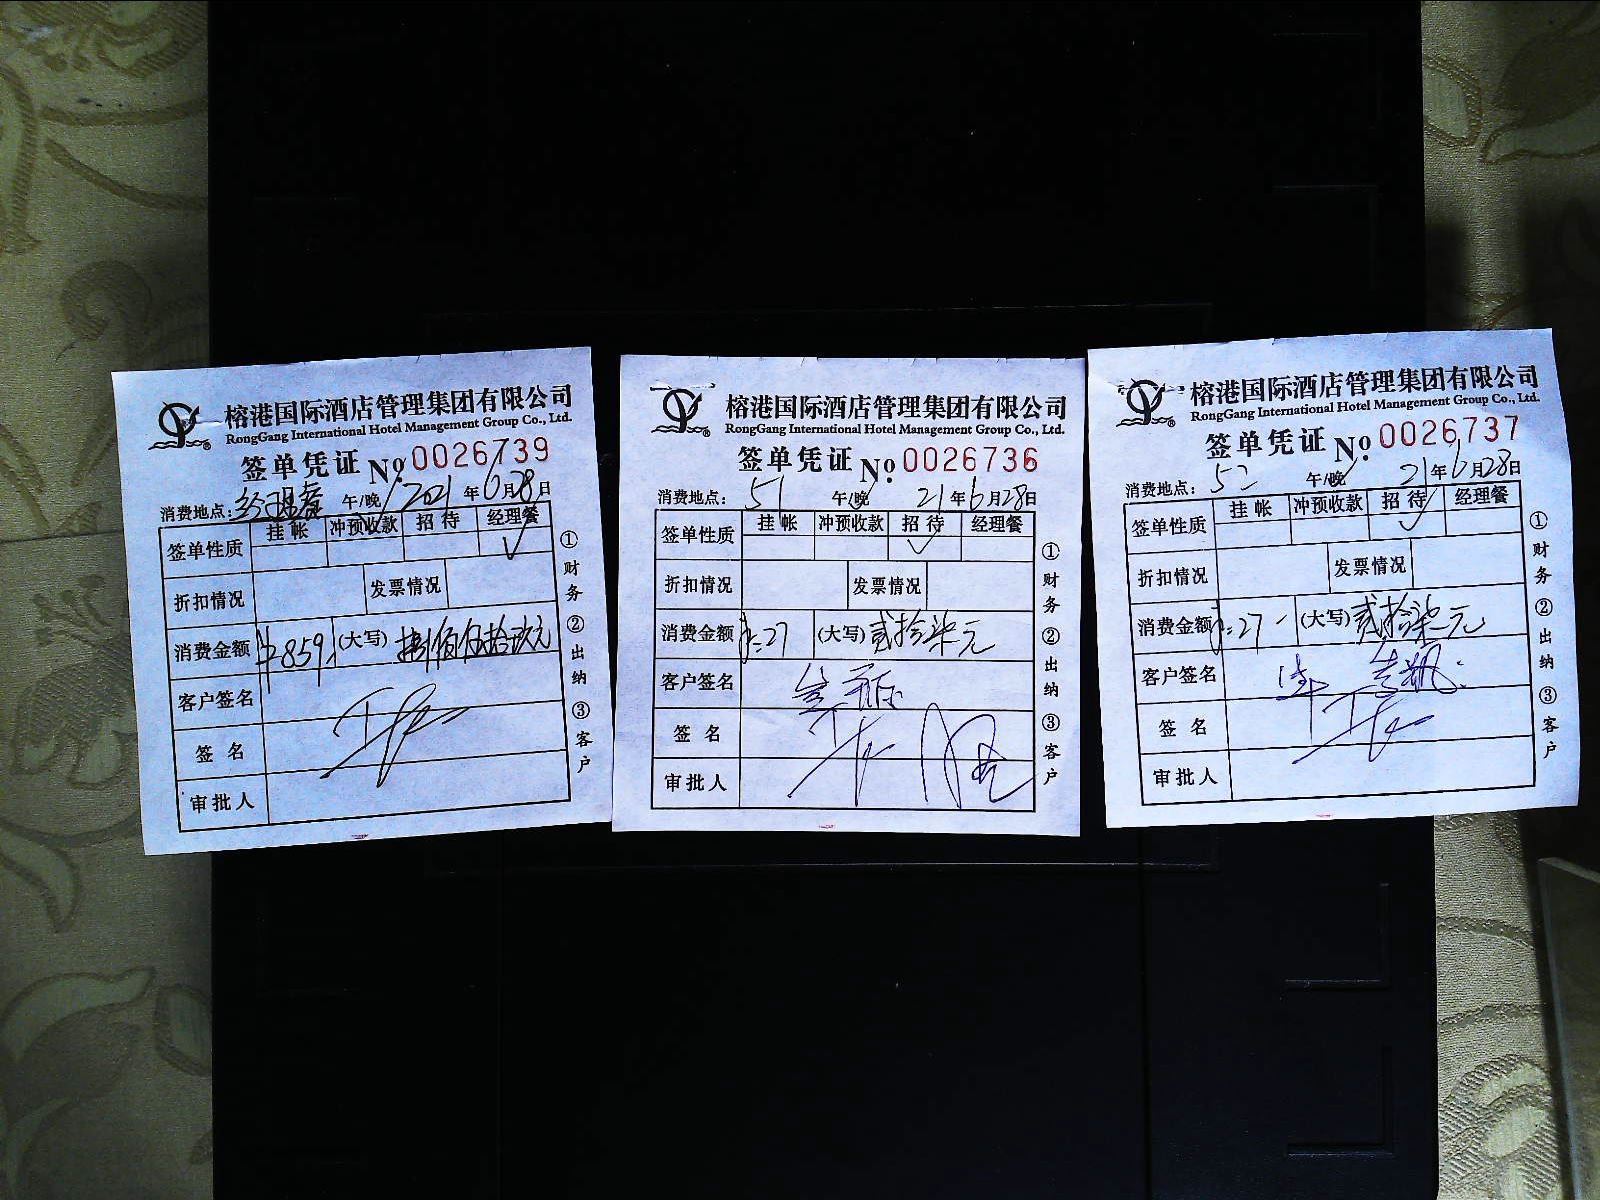 榕港国际酒店管理集团有限公司
RongGang International Hotel Management Group Co., Ltd.
签单凭证 No. 0026739
消费地点: 经理餐 午/晚 2021年6月28日
签单性质 挂帐 冲预收款 招待 经理餐 ✓
折扣情况 发票情况
消费金额 ¥859 (大写) 捌佰伍拾玖元
客户签名
签名
审批人
①财务 ②出纳 ③客户
榕港国际酒店管理集团有限公司
RongGang International Hotel Management Group Co., Ltd.
签单凭证 No. 0026736
消费地点: 51 午/晚 21年6月28日
签单性质 挂帐 冲预收款 招待 ✓ 经理餐
折扣情况 发票情况
消费金额 27 (大写) 贰拾柒元
客户签名
签名
审批人
①财务 ②出纳 ③客户
榕港国际酒店管理集团有限公司
RongGang International Hotel Management Group Co., Ltd.
签单凭证 No. 0026737
消费地点: 52 午/晚 21年6月28日
签单性质 挂帐 冲预收款 招待 ✓ 经理餐
折扣情况 发票情况
消费金额 27 (大写) 贰拾柒元
客户签名
签名
审批人
①财务 ②出纳 ③客户